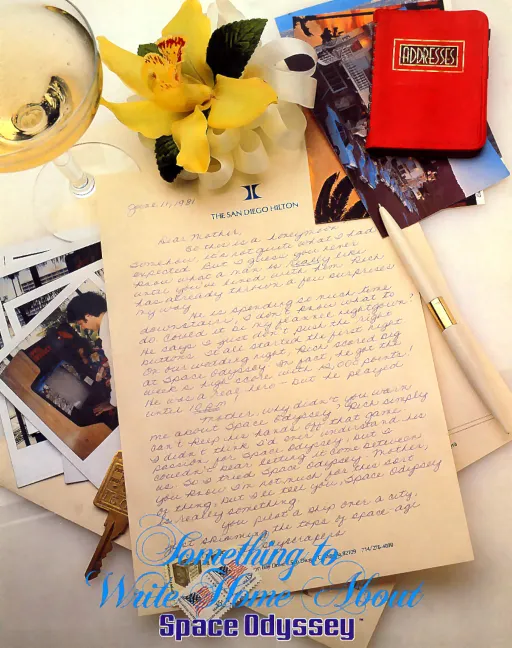 ADDRESSES
THE SAN DIEGO HILTON
June 11, 1981
Dear Mother,
So this is a honeymoon.
Somehow, it's not quite what I had
expected. But I guess you never
know what a man is really like
until you've lived with him. Rich
has already thrown a few surprises
my way.
He is spending so much time
downstairs, I don't know what to
do. Could it be my flannel nightgown?
He says I just don't push the right
buttons. It all started the first night.
On our wedding night, Rich scored big
at Space Odyssey. In fact, he got the
week's high score with 12,000 points!
He was a real hero - but he played
until
Mother, why didn't you warn
me about Space Odyssey? Rich simply
can't keep his hands off that game.
I didn't think I'd ever understand his
passion for Space Odyssey, but I
couldn't bear letting it come between
us. So I tried Space Odyssey. Mother,
you know I'm not much for this sort
of thing, but I'll tell you, Space Odyssey
is really something.
You pilot a ship over a city,
just skimming the tops of space age
skyscrapers
San Diego, 92109 714/276-4010
Something to
Write Home About
Space Odyssey™